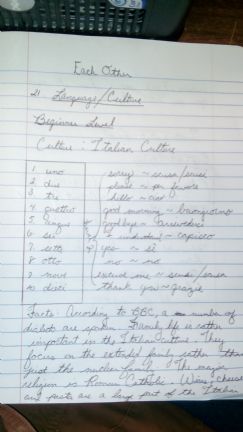 Each Other
21 Language/Culture
Beginner Level
Culture: Italian Culture
1 uno sorry ~ scusa/scusi
2 due please ~ per favore
3 tre hello ~ ciao
4 quattro good morning ~ buongiorno
5 goodbye ~
6 sei ~ capisco
7 sette yes ~ sì
8 otto no ~ no
9 nove excuse me ~ scusi/scusa
10 dieci thank you ~ grazie
Facts: According to BBC, a number of
are spoken. Family life is
important in the Italian culture. They
focus on the extended family rather than
just the nuclear family. The major
religion is Roman Catholic. Wine, cheese
and pasta are a large part of the Italian